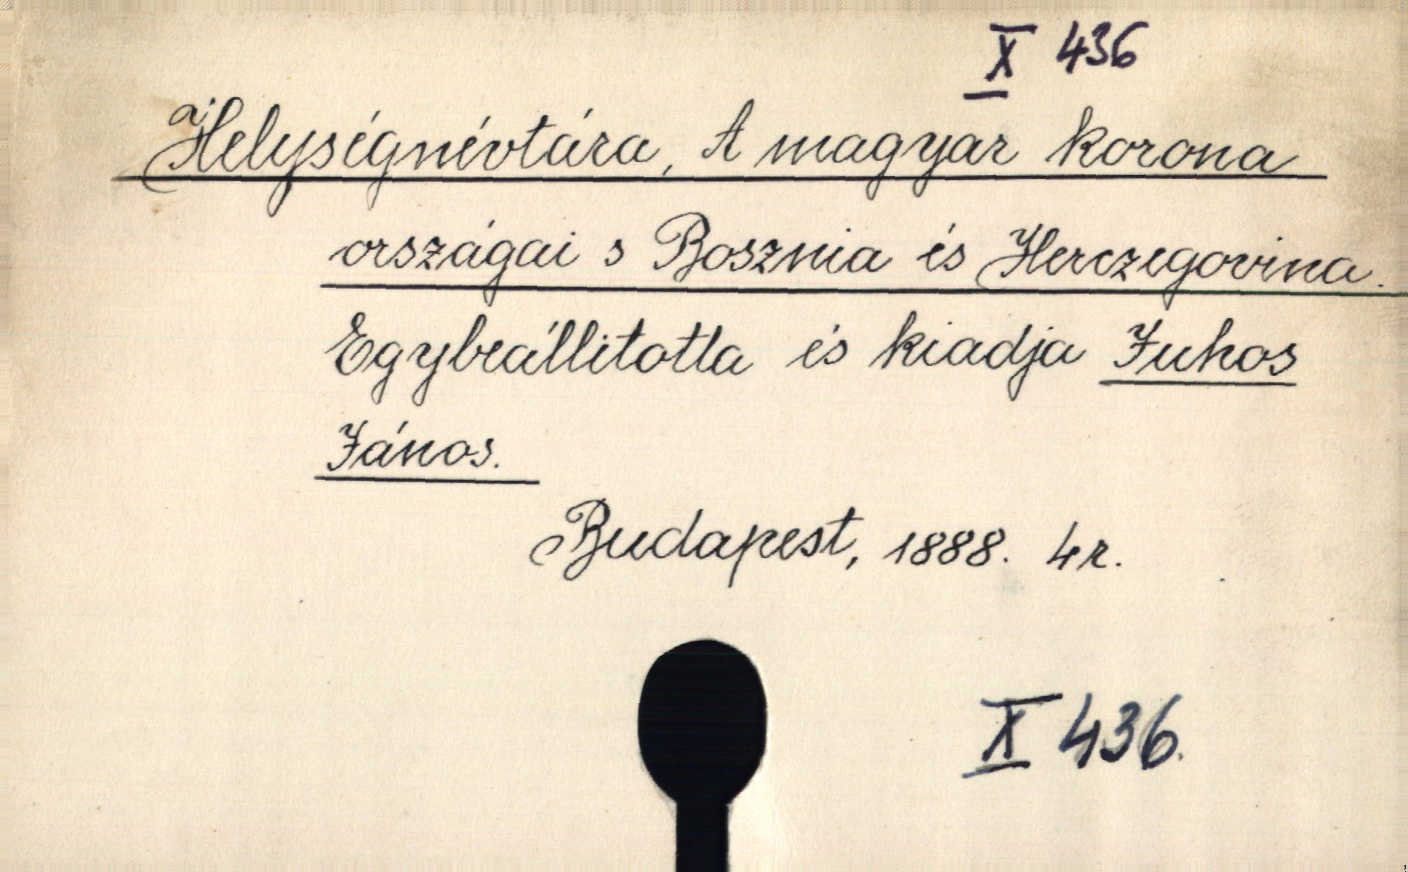 X 436
Helységnévtára, A magyar korona
országai s Bosznia és Herczegovina.
Egybeállitotta és kiadja Juhos
János.
Budapest, 1888. 4r.
X 436.